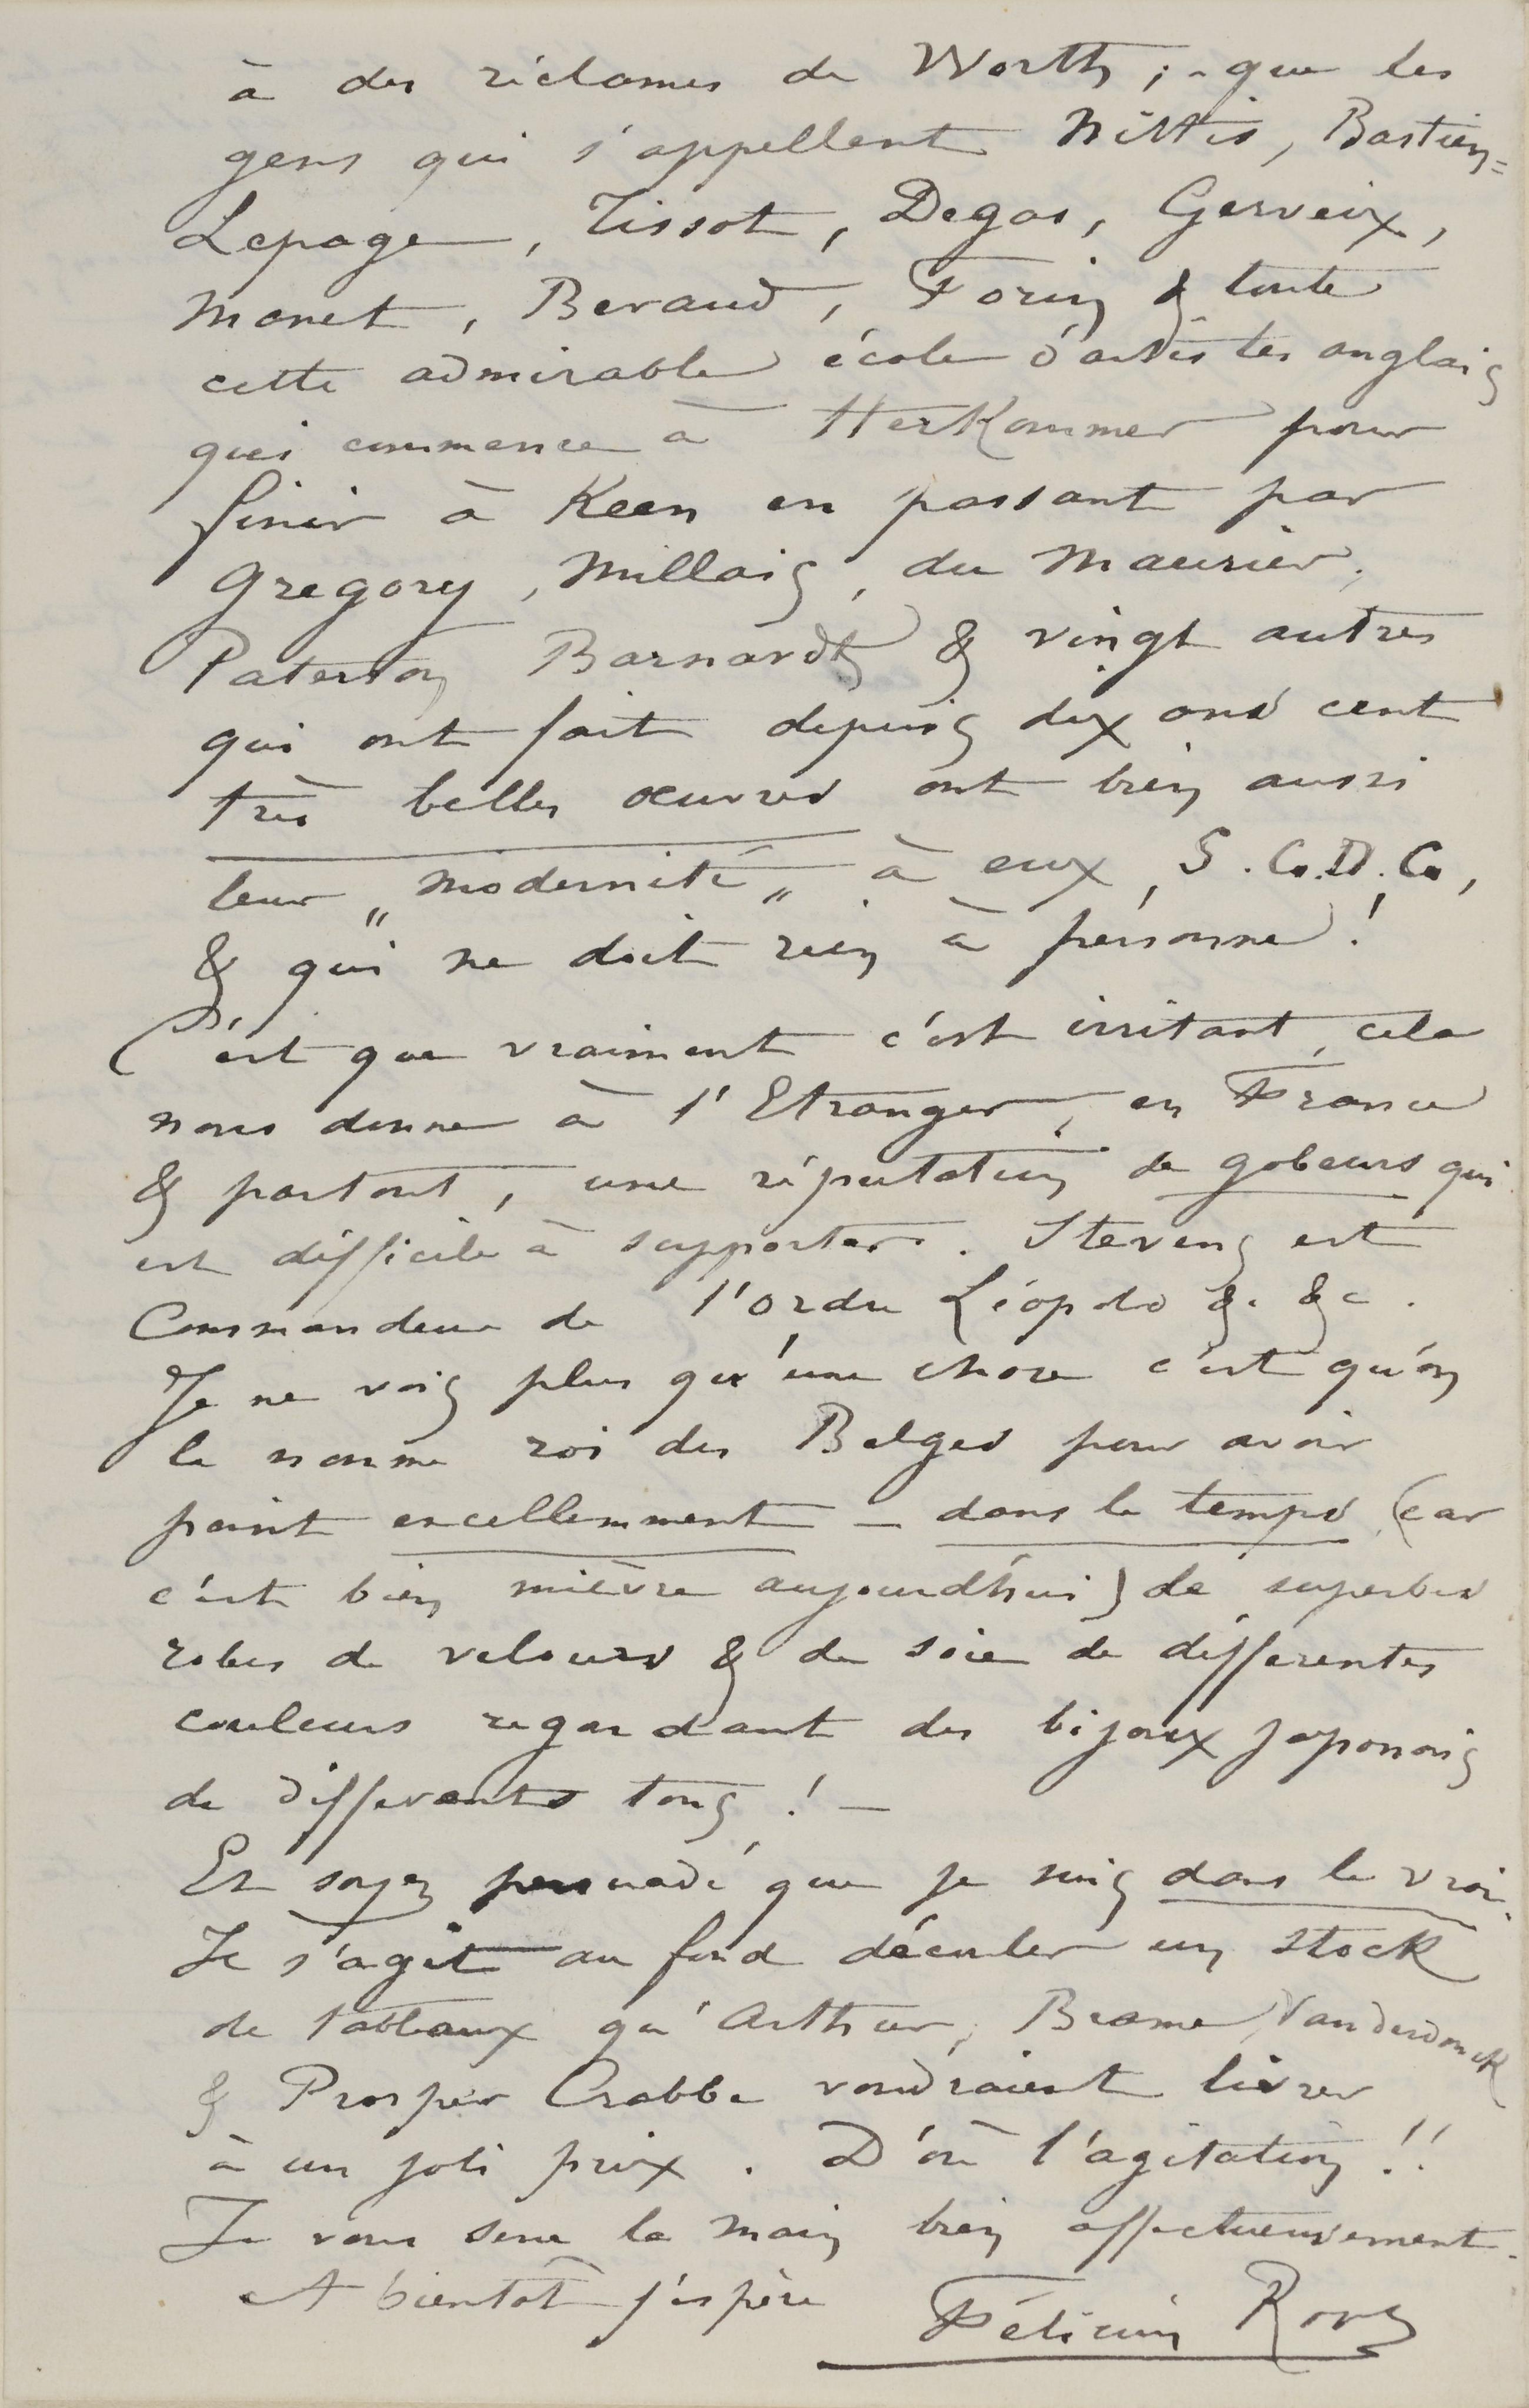 à des réclames de Worth ; - que les
gens qui s'appellent Nittis, Bastien=
Lepage, Tissot, Degas, Gerveix,
Monet, Beraud, Forin & toute
cette admirable école d'artistes anglais
qui commence à HerKommer pour
finir à Keen en passant par
Gregory, Millais, du Maurier,
Paterson Barnardt & vingt autres
qui ont fait depuis dix ans cent
très belles œuvres ont bien aussi
leur „modernité„ à eux, S.G.D.G,
& qui ne doit rien à personne !
C'est que vraiment c'est irritant, cela
nous donne à l'Etranger, en France
& partout, une réputation de gobeurs qui
est difficile à supporter. Stevens est
Commandeur de l'ordre Léopold &. &c.
Je ne vois plus qu'une chose c'est qu'on
le nomme roi des Belges pour avoir
peint excellemment – dans le temps (car
c'est bien mièvre aujourd'hui) de superbes
robes de velours & de soie de différentes
couleurs regardant des bijoux japonais
de différents tons ! –
Et soyez persuadé que je suis dans le vrai.
Il s'agit au fond d'écouler un stock
de tableaux qu'Arthur, Brame, Vanderdonck
& Prosper Crabbe voudraient livrer
à un joli prix. D'où l'agitation !!
Je vous serre la main bien affectueusement.
et A bientôt j'espère
Félicien Rops